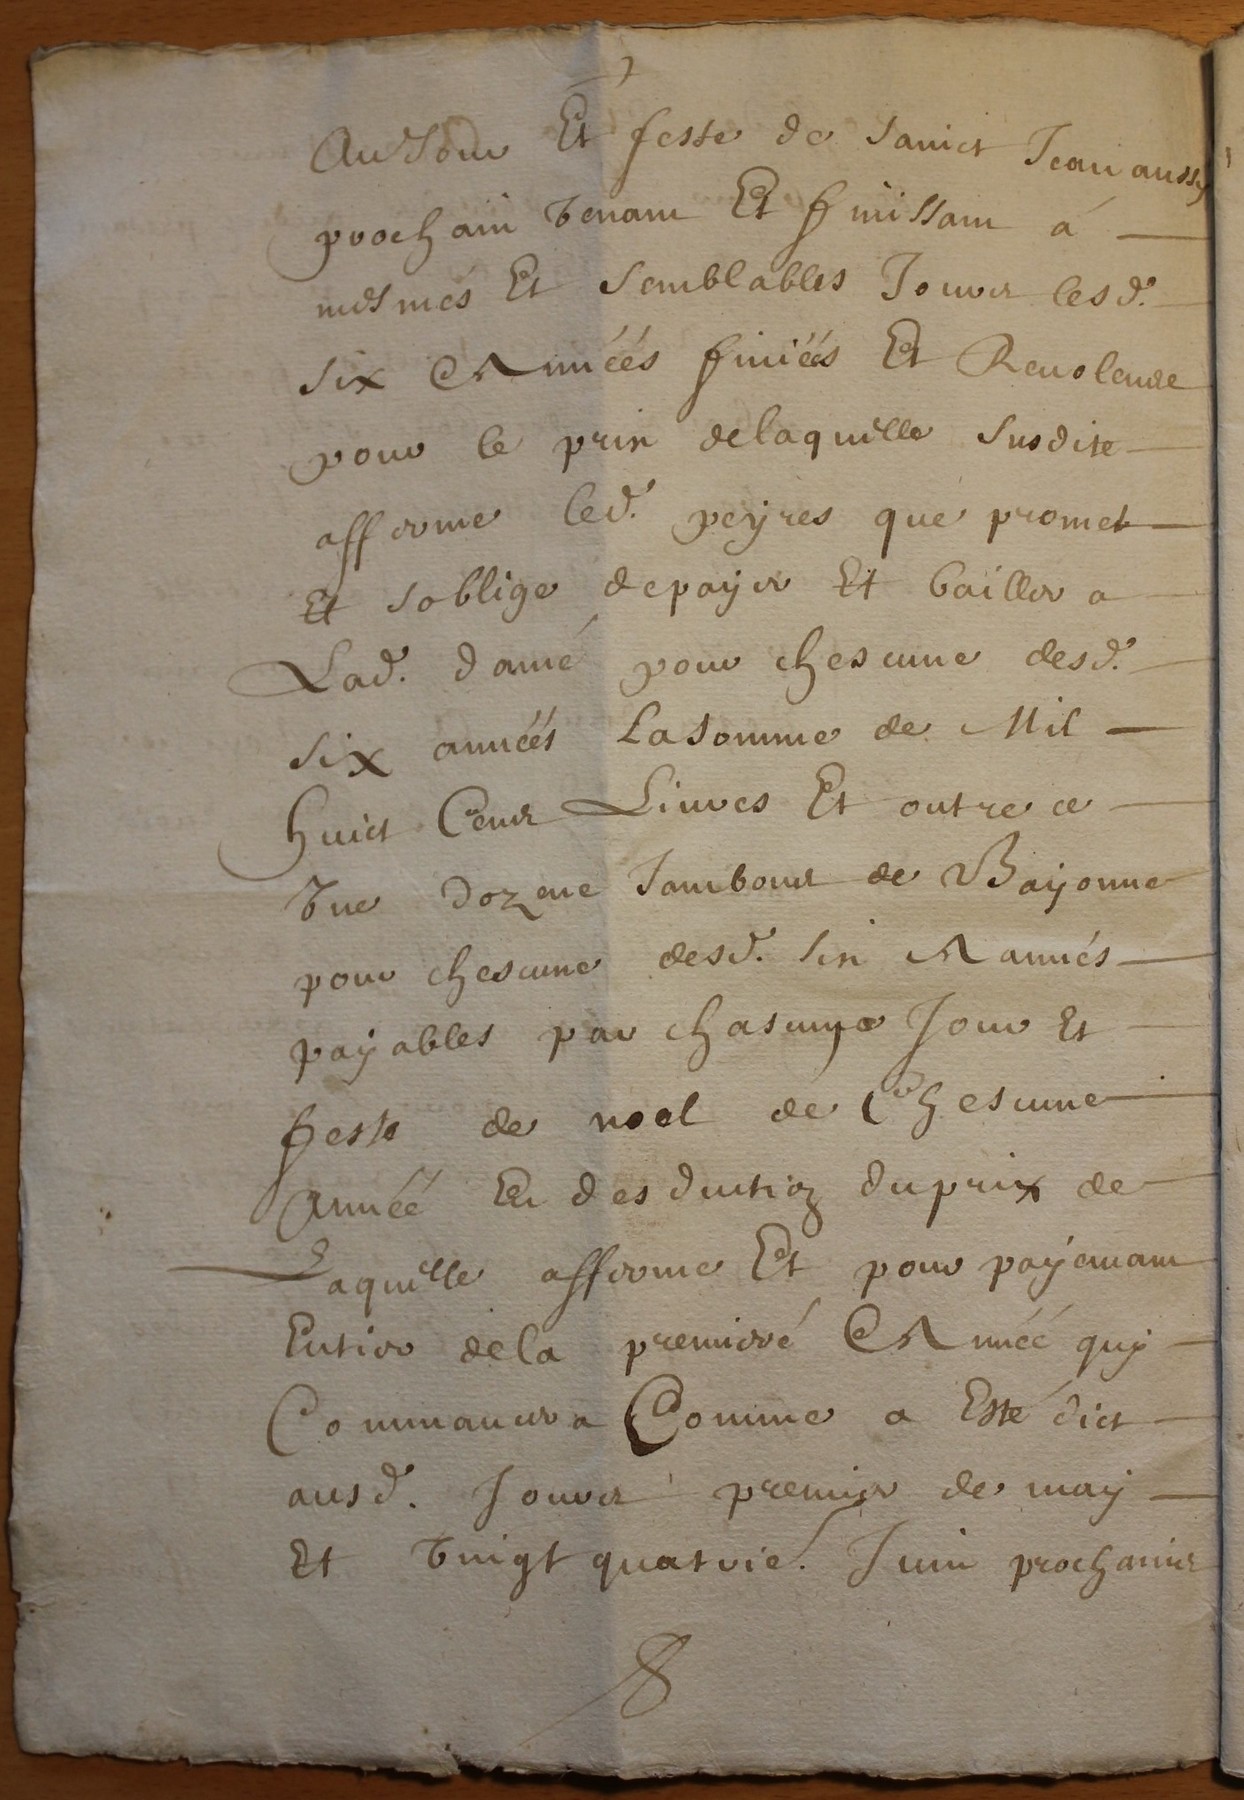 Au Jour Et feste de sainct Jean aussy
prochain venant Et finissant á
mesmes Et semblables Jours lesd.
six Années finiées Et Revoleues
pour le prix delaquelle susdite
afferme led. peyres que promet
Et soblige depayer Et bailler a
Lad. dame pour chescune desd.
six années La somme de Mil
huict Cents Liures Et outre ce
Vne dozene Jambons de Bayonne
pour chescune desd. six Années
payables par chasuns Jour Et
feste de noel de Chescune
Année En desduction du prix de
Laquelle afferme Et pour payemant
Entier dela premiere Année quy
Commancera Comme a Esté dict
ausd. Jours premier de may
Et Vingt quatrie. Juin prochains
8